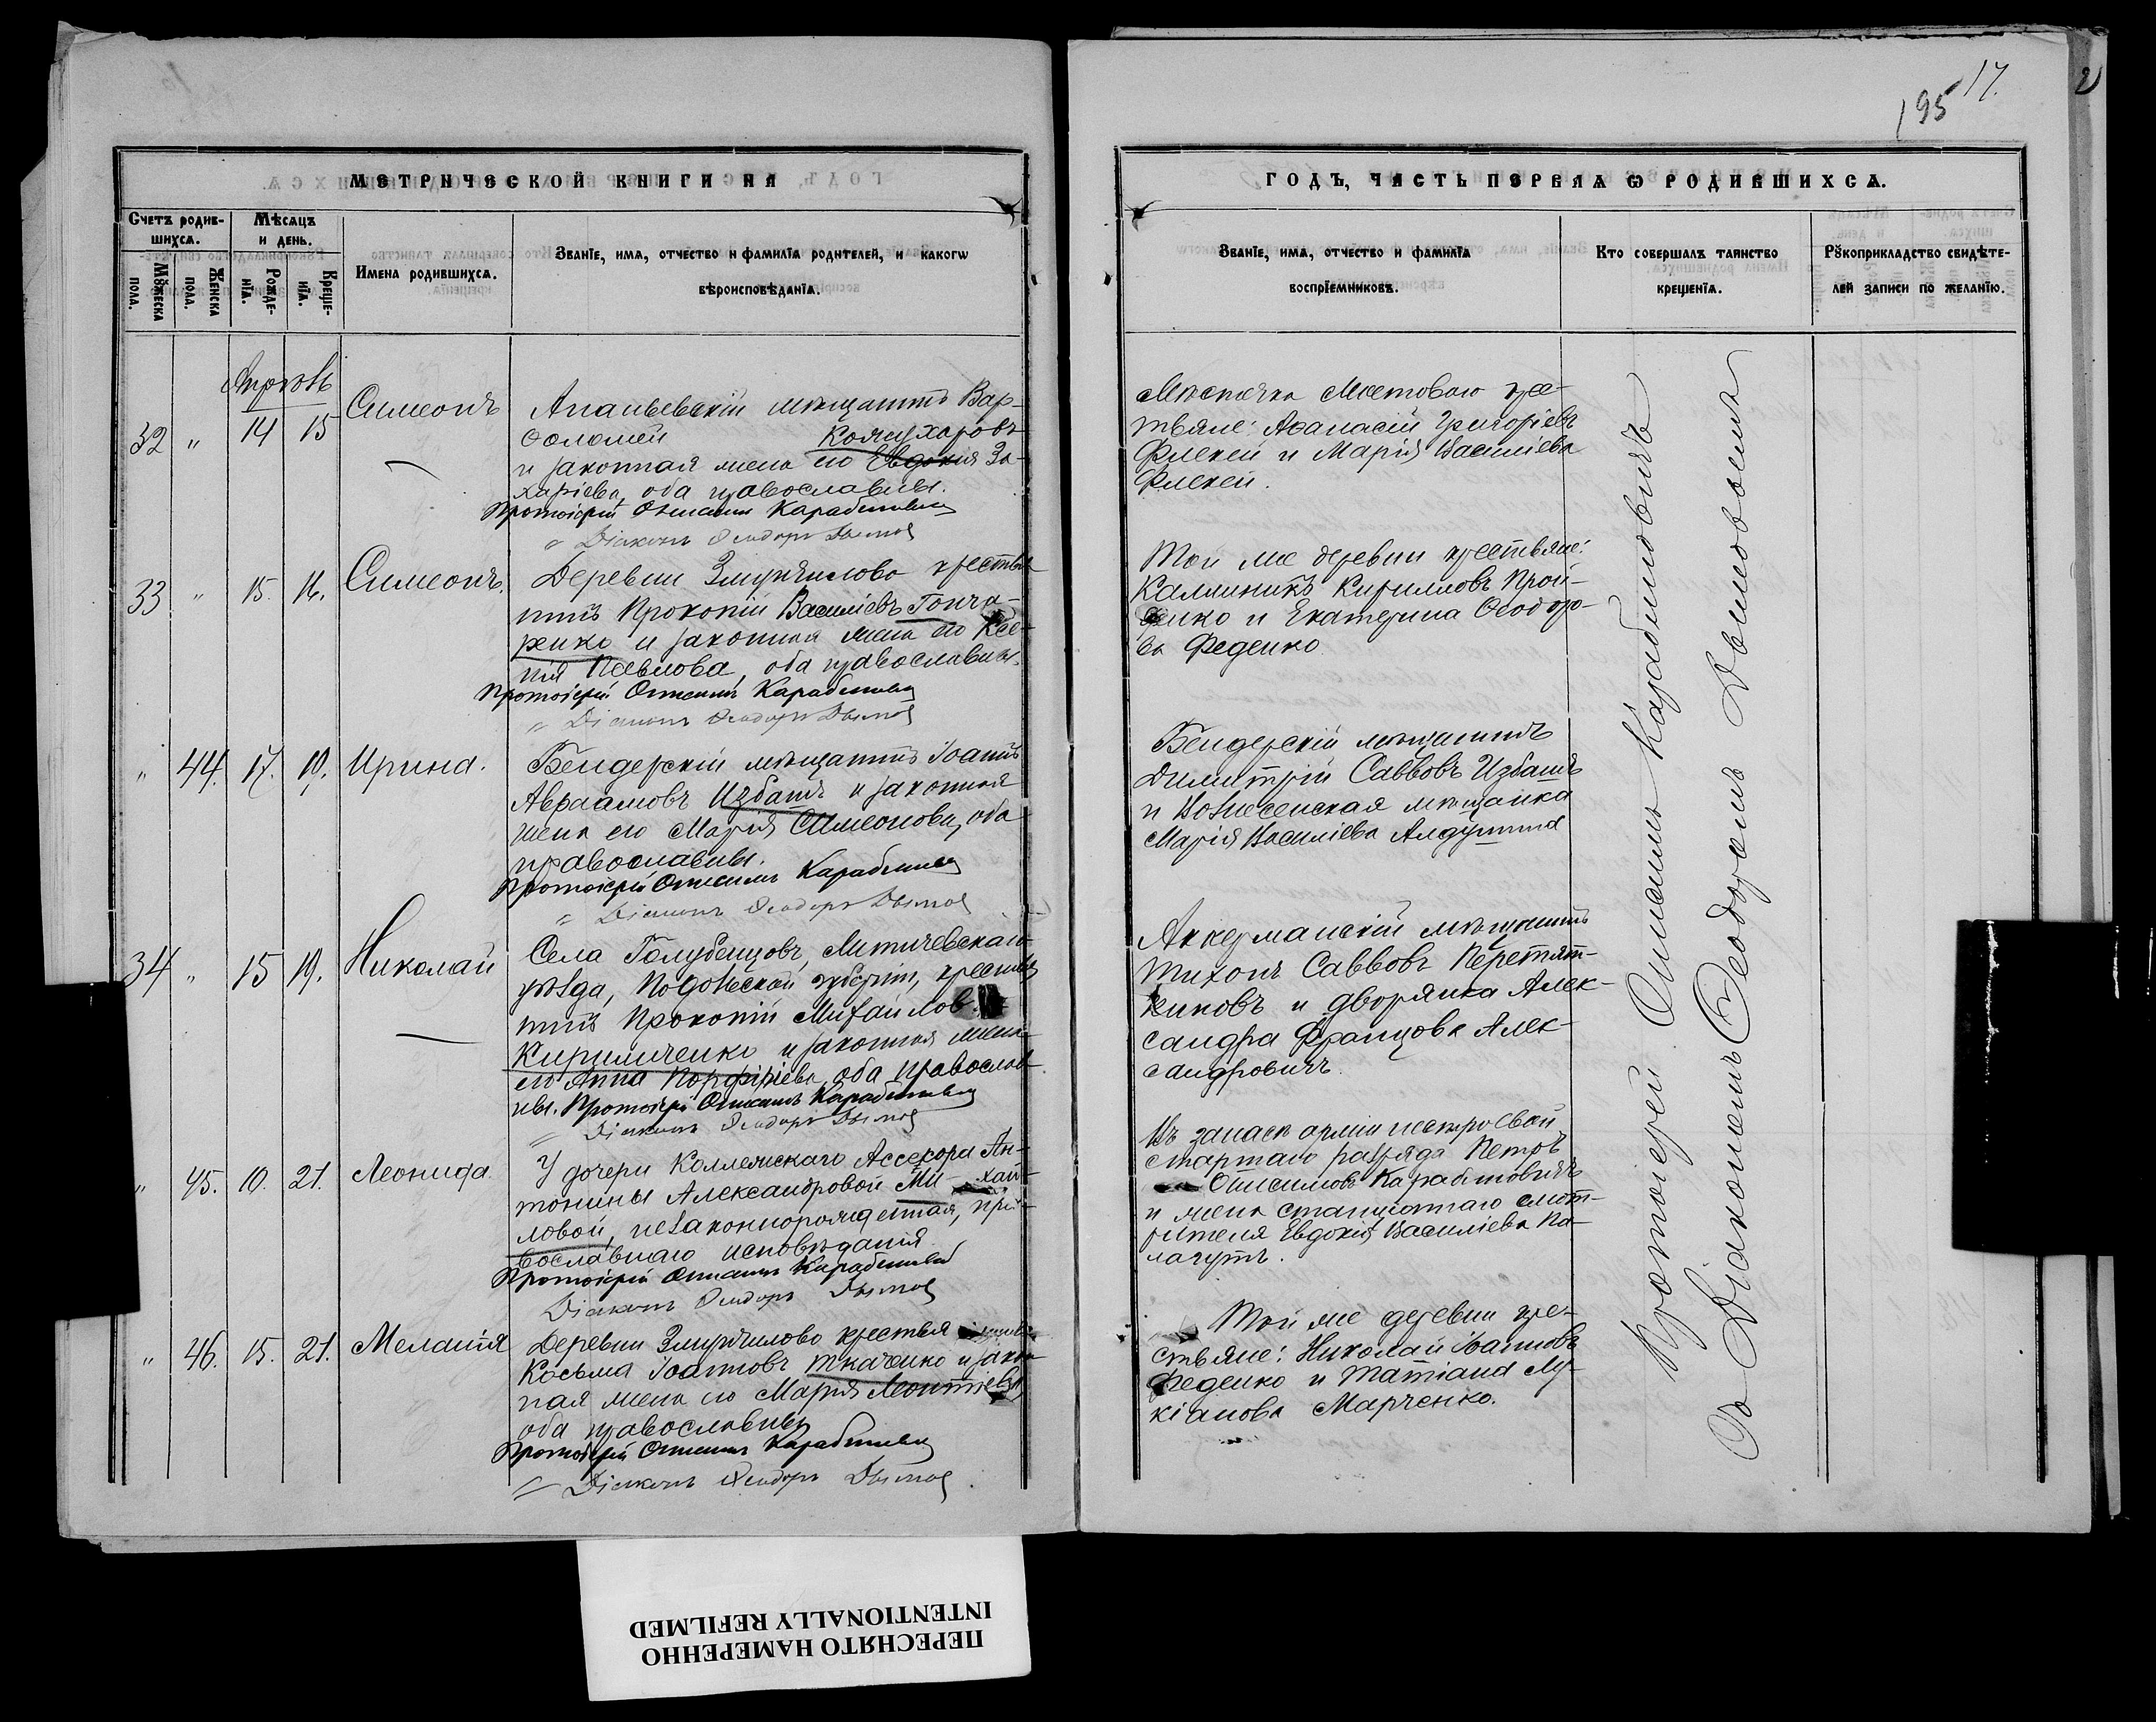 195 17.
МЕТРИЧЕСКОЙ КНИГИ НА
Счетъ родив-
шихсѧ.
Мѣсѧцъ
и день.
Мꙋжеска
пола.
Женска
пола.
Рожде-
нїѧ.
Креще-
нїѧ.
Имена родившихсѧ.
Званїе, имѧ, отчество и фамилїѧ родителей, и какогѡ
вѣроисповѣданїѧ.
Апрѣль
32 " 14 15 Симеонъ
Ананьевскій мѣщанинъ Вар-
ѳоломей
и законная жена его Евдокія За-
харіева, оба православны.
Протоіерей Онисимъ Карабиновичъ
" Діаконъ Ѳеодоръ Дымовъ
33 " 15. 16. Симеонъ.
Деревни Змунчилово крестья-
нинъ Прокопій Василіевъ Гонча-
ренко и законная жена его Ксе-
нія Павлова, оба православны.
Протоіерей Онисимъ Карабиновичъ
" Діаконъ Ѳеодоръ Дымовъ
" 44. 17. 19. Ирина.
Бендерскій мѣщанинъ Іоаннъ
Авраамовъ Избашъ и законная
жена его Марія Симеонова, оба
православны.
Протоіерей Онисимъ Карабиновичъ
" Діаконъ Ѳеодоръ Дымовъ
34 " 15 19. Николай
Села Голубенцовъ, Литичевскаго
уѣзда, Подольской губерніи, крестья-
нинъ Прокопій Михайловъ
Кириличенко и законная жена
его Анна Порфиріева, оба православ-
ны. Протоіерей Онисимъ Карабиновичъ
" Діаконъ Ѳеодоръ Дымовъ
" 45. 10. 21. Леонида.
У дочери Коллежскаго Ассесора Ан-
тонины Александровой Ми-хай-
ловой, незаконнорожденная, пра-
вославнаго исповѣданія
Протоіерей Онисимъ Карабиновичъ
Діаконъ Ѳеодоръ Дымовъ
" 46. 15. 21. Меланія
Деревни Змунчилово крестья
Косьма Іоанновъ Ткаченко и закон-
ная жена его Марія Леонтіева,
оба православны
Протоіерей Онисимъ Карабиновичъ
" Діаконъ Ѳеодоръ Дымовъ
ГОДЪ, ЧАСТЬ ПЕРВАѦ Ѡ РОДИВШИХСѦ.
Званїе, имѧ, отчество и фамилїѧ
воспрїемниковъ.
Кто совершалъ таинство
крещенїѧ.
Рꙋкоприкладство свидѣте-
лей записи по желанїю.
Мѣстечка Мостоваго крес-
тьяне: Аѳанасій Григоріевъ
Флекей и Марія Василіева
Флекей.
Той же деревни крестьяне:
Каллиникъ Кирилловъ Прой-
енко и Екатерина Ѳеодоро-
ва Феденко.
Бендерскій мѣщанинъ
Димитрій Саввовъ Избашъ
и Вознесенская мѣщанка
Марія Василіева Алдунина
Аккерманскій мѣщанинъ
Тихонъ Саввовъ Перетят-
киновъ и дворянка Алек-
сандра Францова Алек-
сандровичъ.
Въ запасѣ арміи нестроевой
старшаго разряда Петръ
Онисимовъ Карабиновичъ
и жена станціоннаго смот-
рителя Евдокія Василіева Па-
лагутъ.
Той же деревни кре-
стьяне: Николай Іоанновъ
Феденко и Татіана Лу-
кіанова Марченко.
Протоіерей Онисимъ Карабиновичъ
Со Діакономъ Ѳеодоромъ Дымовымъ
ПЕРЕСНЯТО НАМЕРЕННО
INTENTIONALLY REFILMED